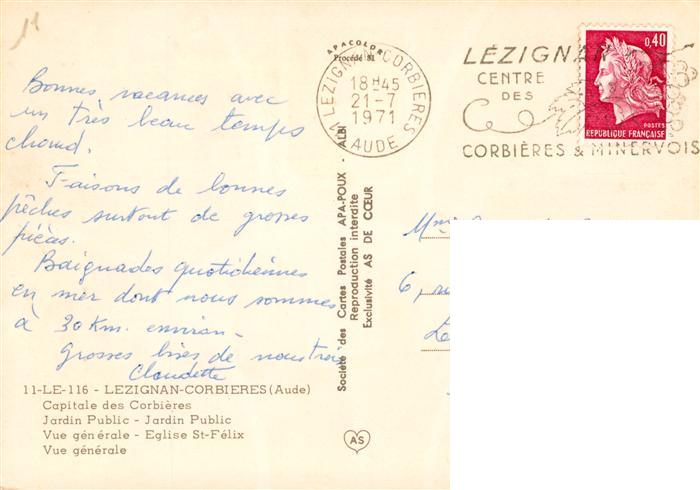 Bonnes vacances avec
un très beau temps
chaud.
Faisons de bonnes
pêches surtout de grosses
pièces.
Baignades quotidiennes
en mer dont nous sommes
à 30 Km. environ -
Grosses bises de nous trois
Claudette
11-LE-116 - LEZIGNAN-CORBIERES (Aude)
Capitale des Corbières
Jardin Public - Jardin Public
Vue générale - Eglise St-Félix
Vue générale
APACOLOR
Procédé 81
Société des Cartes Postales APA-POUX - ALBI
Reproduction interdite
Exclusivité AS DE CŒUR
AS
11 LEZIGNAN-CORBIERES
18H45
21-7
1971
AUDE
LÉZIGNA
CENTRE
DES
CORBIÈRES & MINERVOIS
0,40
POSTES
REPUBLIQUE FRANÇAISE
Mme
6, rue